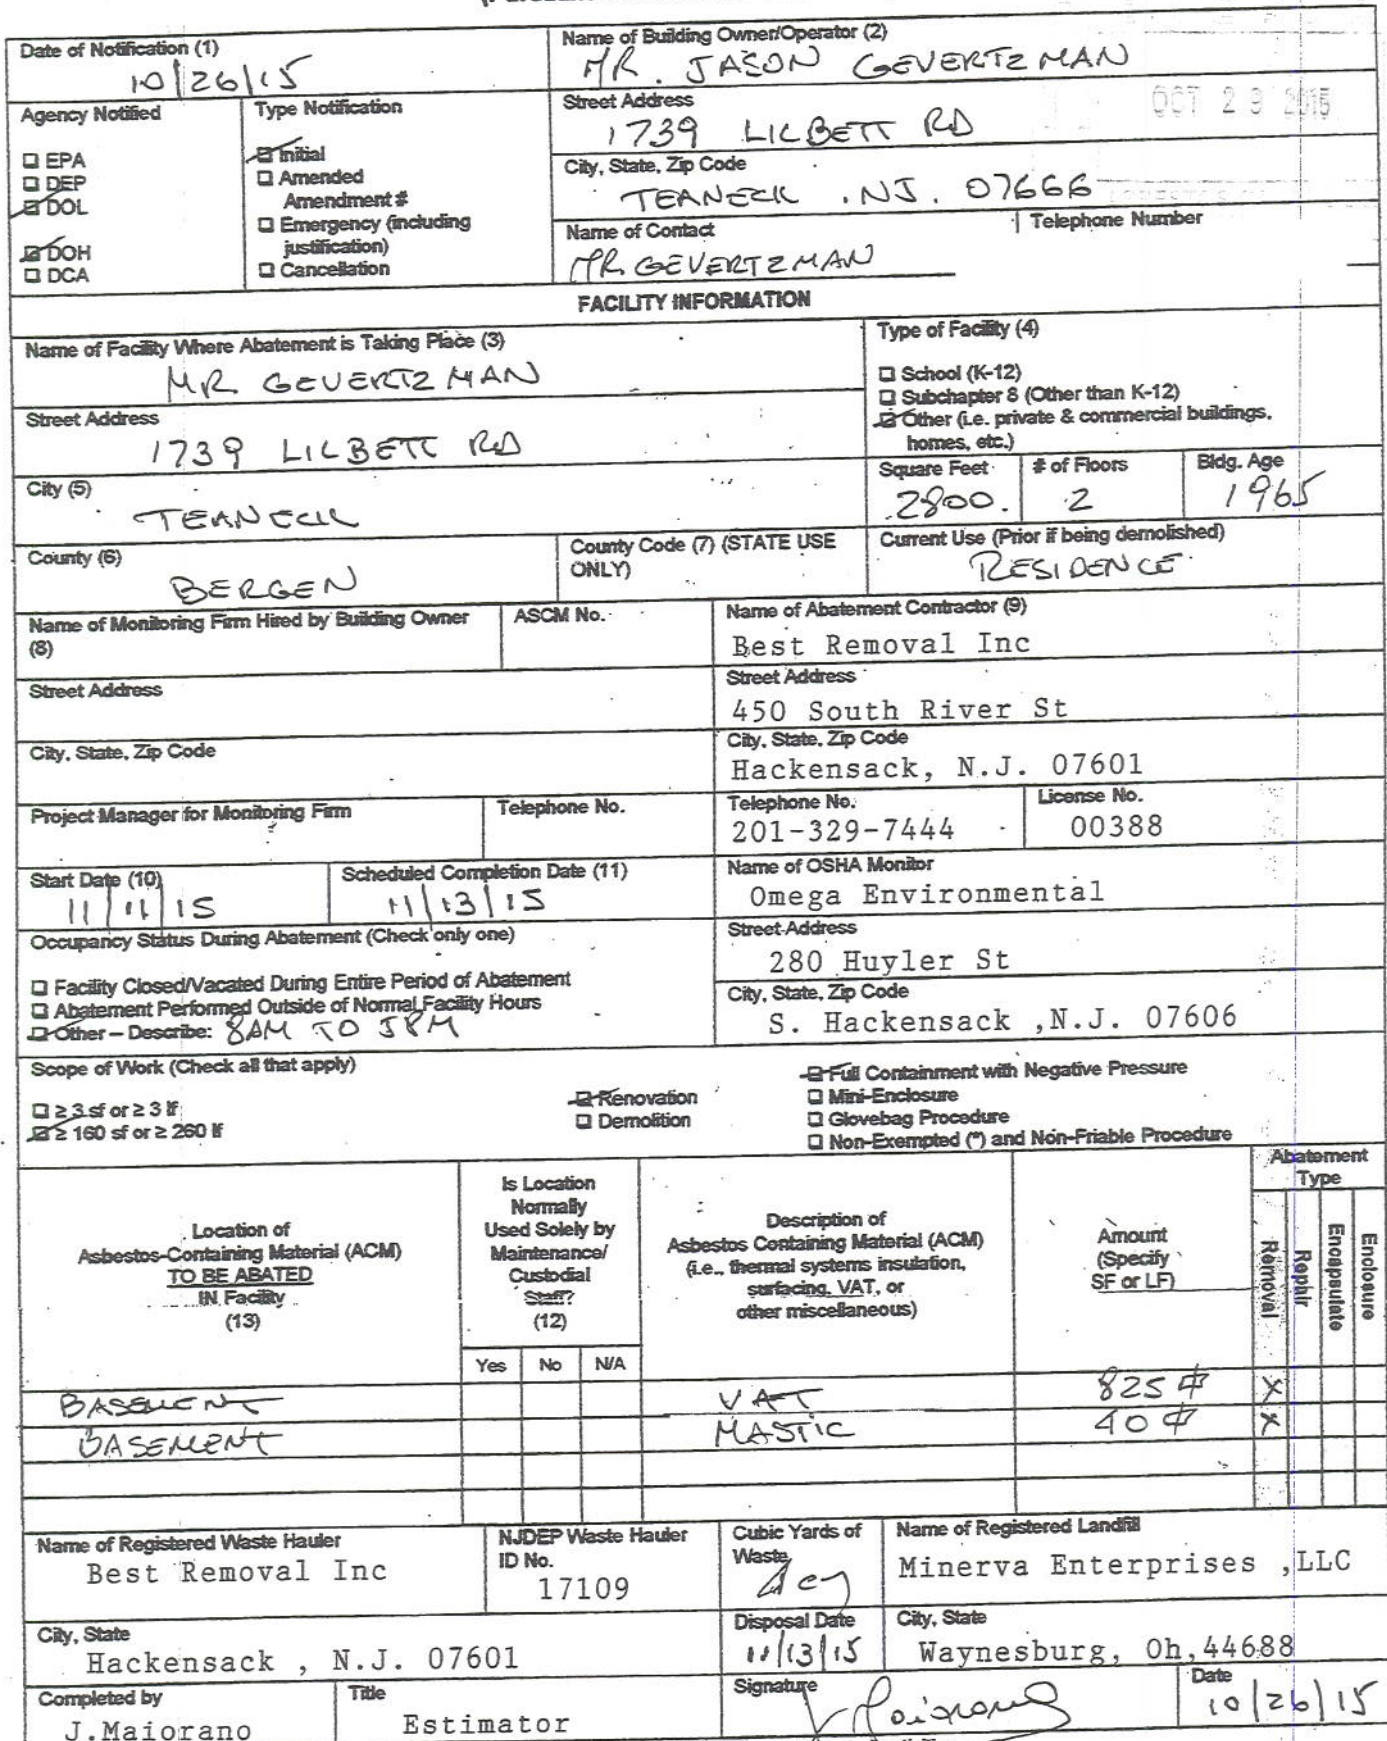 Date of Notification (1)
10/26/15
Name of Building Owner/Operator (2)
MR. JASON GEVERTZMAN
Agency Notified
Type Notification
Street Address
1739 LILBETT RD
OCT 29 2015
☐ EPA
☐ DEP
☑ DOL
☑ DOH
☐ DCA
☑ Initial
☐ Amended
Amendment #
☐ Emergency (including
justification)
☐ Cancellation
City, State, Zip Code
TEANECK . NJ. 07666
Name of Contact
MR. GEVERTZMAN
Telephone Number
FACILITY INFORMATION
Name of Facility Where Abatement is Taking Place (3)
MR. GEVERTZMAN
Type of Facility (4)
☐ School (K-12)
☐ Subchapter 8 (Other than K-12)
☑ Other (i.e. private & commercial buildings,
homes, etc.)
Street Address
1739 LILBETT RD
City (5)
TEANECK
Square Feet
2800.
# of Floors
2
Bldg. Age
1965
County (6)
BERGEN
County Code (7) (STATE USE
ONLY)
Current Use (Prior if being demolished)
RESIDENCE
Name of Monitoring Firm Hired by Building Owner
(8)
ASCM No.
Name of Abatement Contractor (9)
Best Removal Inc
Street Address
Street Address
450 South River St
City, State, Zip Code
City, State, Zip Code
Hackensack, N.J. 07601
Project Manager for Monitoring Firm
Telephone No.
Telephone No.
201-329-7444
License No.
00388
Start Date (10)
11/11/15
Scheduled Completion Date (11)
11/13/15
Name of OSHA Monitor
Omega Environmental
Occupancy Status During Abatement (Check only one)
☐ Facility Closed/Vacated During Entire Period of Abatement
☐ Abatement Performed Outside of Normal Facility Hours
☑ Other – Describe: 8AM TO 5PM
Street Address
280 Huyler St
City, State, Zip Code
S. Hackensack ,N.J. 07606
Scope of Work (Check all that apply)
☐ ≥ 3 sf or ≥ 3 lf
☑ ≥ 160 sf or ≥ 260 lf
☑ Renovation
☐ Demolition
☑ Full Containment with Negative Pressure
☐ Mini-Enclosure
☐ Glovebag Procedure
☐ Non-Exempted (*) and Non-Friable Procedure
Location of
Asbestos-Containing Material (ACM)
TO BE ABATED
IN Facility
(13)
Is Location
Normally
Used Solely by
Maintenance/
Custodial
Staff?
(12)
Yes No N/A
Description of
Asbestos Containing Material (ACM)
(i.e., thermal systems insulation,
surfacing, VAT, or
other miscellaneous)
Amount
(Specify
SF or LF)
Abatement
Type
Removal
Repair
Encapsulate
Enclosure
BASEMENT VAT 825 ⏀ X
BASEMENT MASTIC 40 ⏀ X
Name of Registered Waste Hauler
Best Removal Inc
NJDEP Waste Hauler
ID No.
17109
Cubic Yards of
Waste
Name of Registered Landfill
Minerva Enterprises ,LLC
City, State
Hackensack , N.J. 07601
Disposal Date
11/13/15
City, State
Waynesburg, Oh,44688
Completed by
J.Maiorano
Title
Estimator
Signature
Date
10/26/15